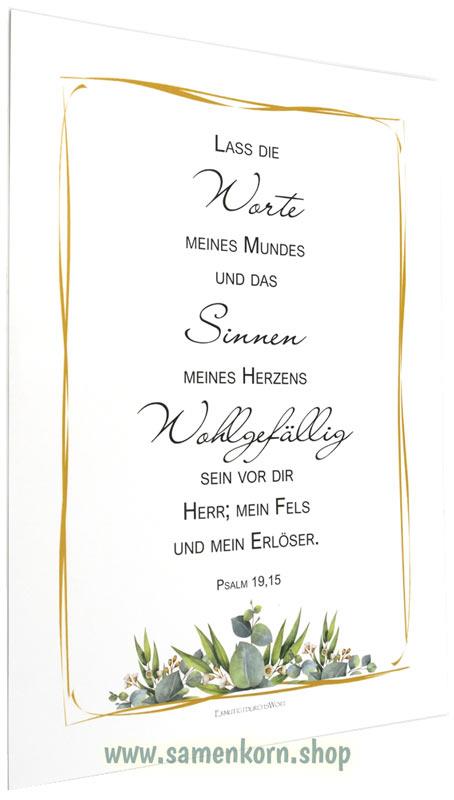 Lass die
Worte
meines Mundes
und das
Sinnen
meines Herzens
Wohlgefällig
sein vor dir
Herr; mein Fels
und mein Erlöser.
Psalm 19,15
ErmutigtdurchsWort
www.samenkorn.shop